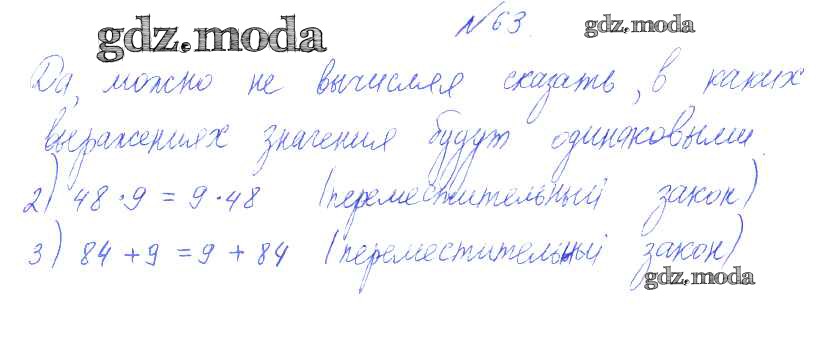 gdz.moda
№63.
gdz.moda
Да, можно не вычисляя сказать, в каких
выражениях значения будут одинаковыми.
2) 48·9 = 9·48 (переместительный закон)
3) 84 + 9 = 9 + 84 (переместительный закон)
gdz.moda